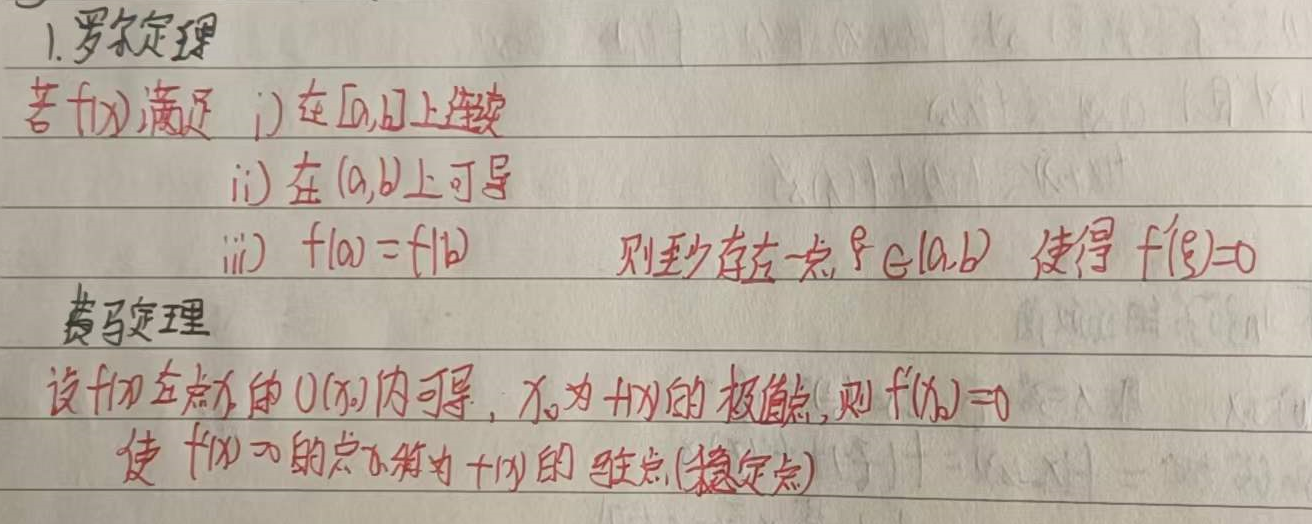 1. 罗尔定理
若 f(x) 满足 i) 在 [a,b] 上连续
ii) 在 (a,b) 上可导
iii) f(a) = f(b) 则至少存在一点 ξ∈(a,b) 使得 f'(ξ)=0
费马定理
设 f(x) 在点 x₀ 的 U(x₀) 内可导, x₀ 为 f(x) 的极值点, 则 f'(x₀)=0
使 f'(x)=0 的点 x₀ 称为 f(x) 的驻点(稳定点)